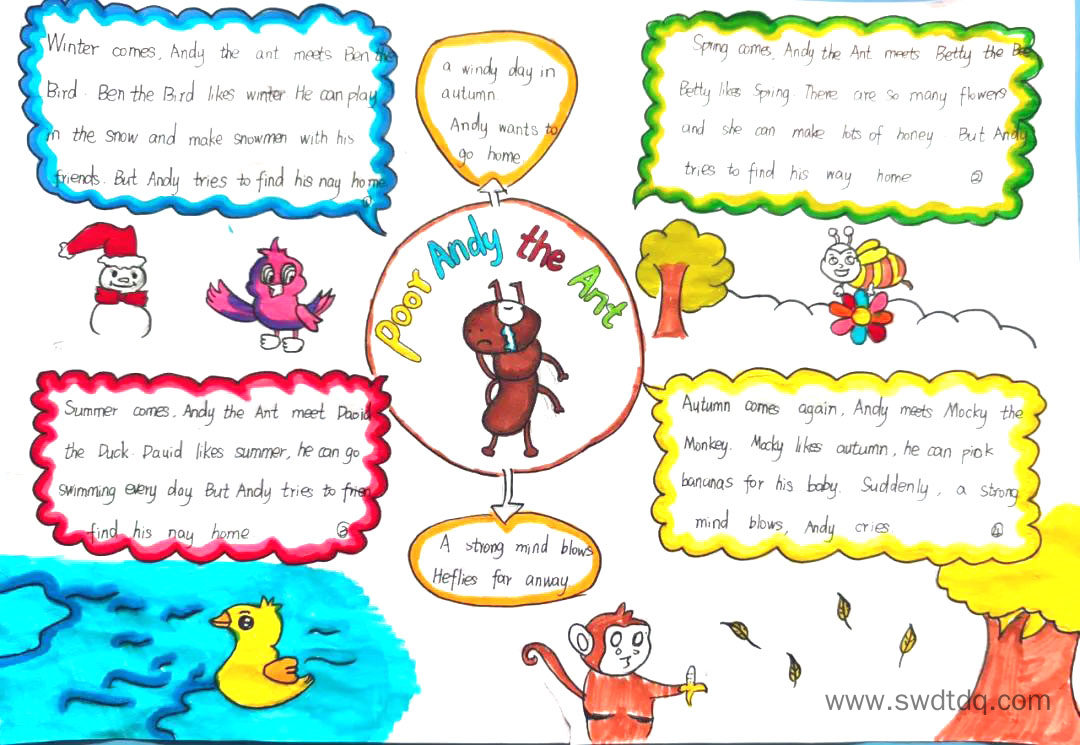 Winter comes, Andy the ant meets Ben the
Bird. Ben the Bird likes winter He can play
in the snow and make snowmen with his
friends. But Andy tries to find his nay home
①
a windy day in
autumn.
Andy wants to
go home.
Spring comes, Andy the Ant meets Betty the Bee
Betty likes Spring. There are so many flowers
and she can make lots of honey. But Andy
tries to find his way home ②
Poor Andy the Ant
Summer comes, Andy the Ant meet David
the Duck. David likes summer, he can go
swimming every day But Andy tries to frien
find his nay home ③
Autumn comes again, Andy meets Mocky the
Monkey. Mocky likes autumn, he can pick
bananas for his baby. Suddenly, a strong
mind blows, Andy cries ④
A strong mind blows
Heflies far anway
www.swdtdq.com